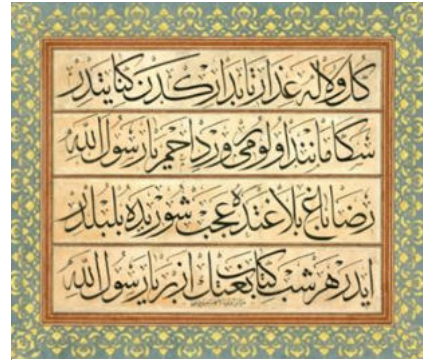 كل و لاله عذار تابداركدن كنايتدر
سكا مانند اولورمى ورد احمر يا رسول الله
رضا باغ بلاغتده عجب شوريده بلبلدر
ايدر هر شب كتاب نعتك ازبر يا رسول الله